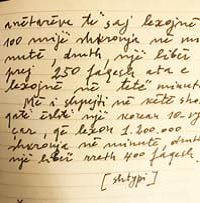 anëtarëve të saj lexojnë
100 mijë shkronja në mi
nutë, dmth, një libër
prej 250 fagesh ata e
lexojnë në tetë minuta
Më i shpejti në këtë sho
qatë është një korean 10.vj
çar, që lexon 1.200.000
shkronja në minutë, dmth
një libër rreth 400 fagesh.
[shtypi]